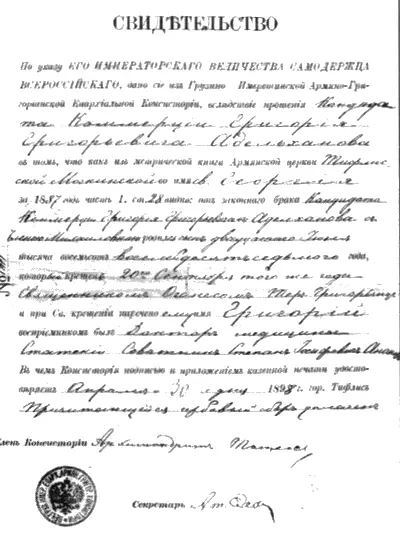 СВИДѢТЕЛЬСТВО
По указу ЕГО ИМПЕРАТОРСКАГО ВЕЛИЧЕСТВА САМОДЕРЖЦА
ВСЕРОССІЙСКАГО, дано сіе изъ Грузино Имеретинской Армяно-Гри-
горіанской Епархіальной Консисторіи, вслѣдствіе прошенія Кандида
та Коммерціи Григорія
Григорьевича Адельханова
въ томъ, что какъ изъ метрической книги Армянской церкви Тифлис
ской Могнинской во имя св. Георгія
за 1887 годъ часть 1. ст. 28 видно: отъ законнаго брака Кандидата
Коммерціи Григорія Григорьевича Адельханова съ
Еленою Михайловною родился сынъ двадцатаго Іюля
тысяча восемьсотъ восемьдесятъ седьмого года,
который крещенъ 20го Сентября того же года
Священникомъ Теръ Григорьянцъ
и при Св. крещеніи наречено ему имя Григорій
воспріемникомъ былъ Докторъ медицины
Статскій Совѣтникъ Степанъ
Въ чемъ Консисторія подписью и приложеніемъ казенной печати удосто-
вѣряетъ Апрѣля 30 дня 1898 г. гор. Тифлисъ
Причитающійся гербовый сборъ уплаченъ
Членъ Консисторіи Архимандритъ
Секретарь